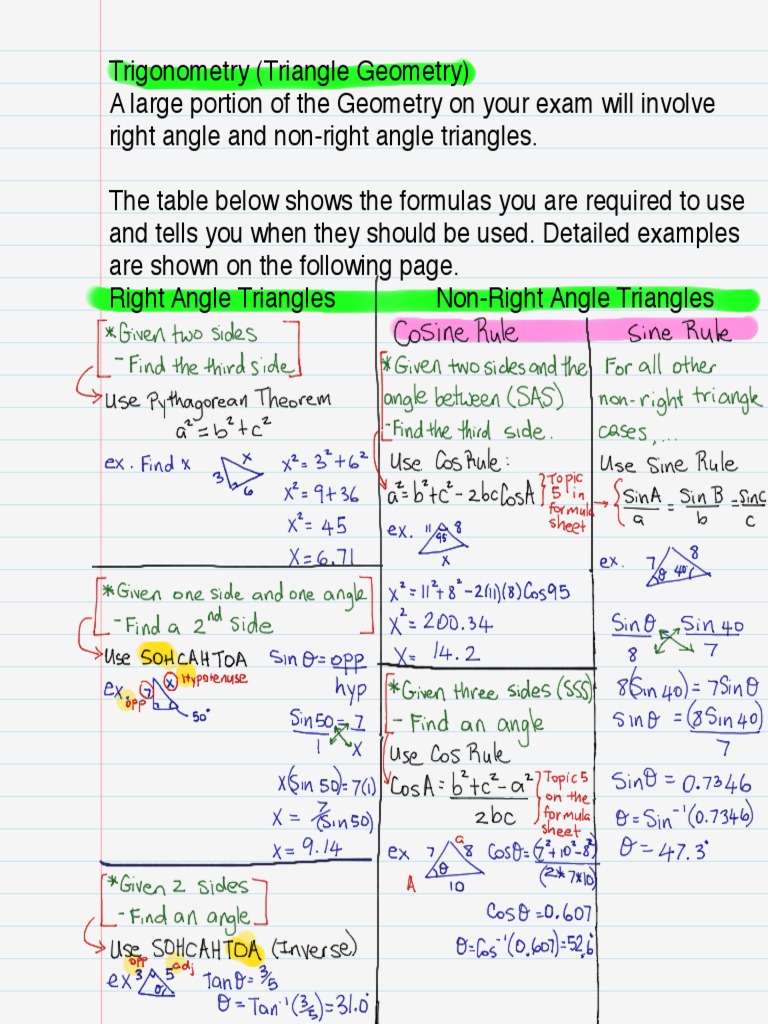 Trigonometry (Triangle Geometry)
A large portion of the Geometry on your exam will involve
right angle and non-right angle triangles.
The table below shows the formulas you are required to use
and tells you when they should be used. Detailed examples
are shown on the following page.
Right Angle Triangles
*Given two sides
- Find the third side
Use Pythagorean Theorem
a² = b² + c²
ex. Find x
x
3
6
x² = 3² + 6²
x² = 9 + 36
x² = 45
x = 6.71
*Given one side and one angle
- Find a 2nd side
Use SOHCAHTOA
Sin θ = opp
hyp
ex.
opp
7
x
Hypotenuse
50°
Sin 50 = 7
1 x
x(Sin 50) = 7(1)
x = 7/(Sin 50)
x = 9.14
*Given 2 sides
- Find an angle
Use SOHCAHTOA (Inverse)
ex
opp
3
5
adj
θ
Tan θ = 3/5
θ = Tan⁻¹(3/5) = 31.0°
Non-Right Angle Triangles
Cosine Rule
*Given two sides and the
angle between (SAS)
- Find the third side.
Use Cos Rule:
a² = b² + c² - 2bc Cos A
Topic
5 in
formula
sheet
ex.
11
8
95
x
x² = 11² + 8² - 2(11)(8) Cos 95
x² = 200.34
x = 14.2
*Given three sides (SSS)
- Find an angle
Use Cos Rule
Cos A = b² + c² - a²
2bc
Topic 5
on the
formula
sheet
ex
7
a
8
θ
A
10
Cos θ = (7² + 10² - 8²)
(2*7*10)
Cos θ = 0.607
θ = Cos⁻¹(0.607) = 52.6°
Sine Rule
For all other
non-right triangle
cases,...
Use Sine Rule
Sin A = Sin B = Sin C
a b c
ex.
7
8
θ
40°
Sin θ Sin 40
8 7
8(Sin 40) = 7 Sin θ
Sin θ = (8 Sin 40)
7
Sin θ = 0.7346
θ = Sin⁻¹(0.7346)
θ = 47.3°